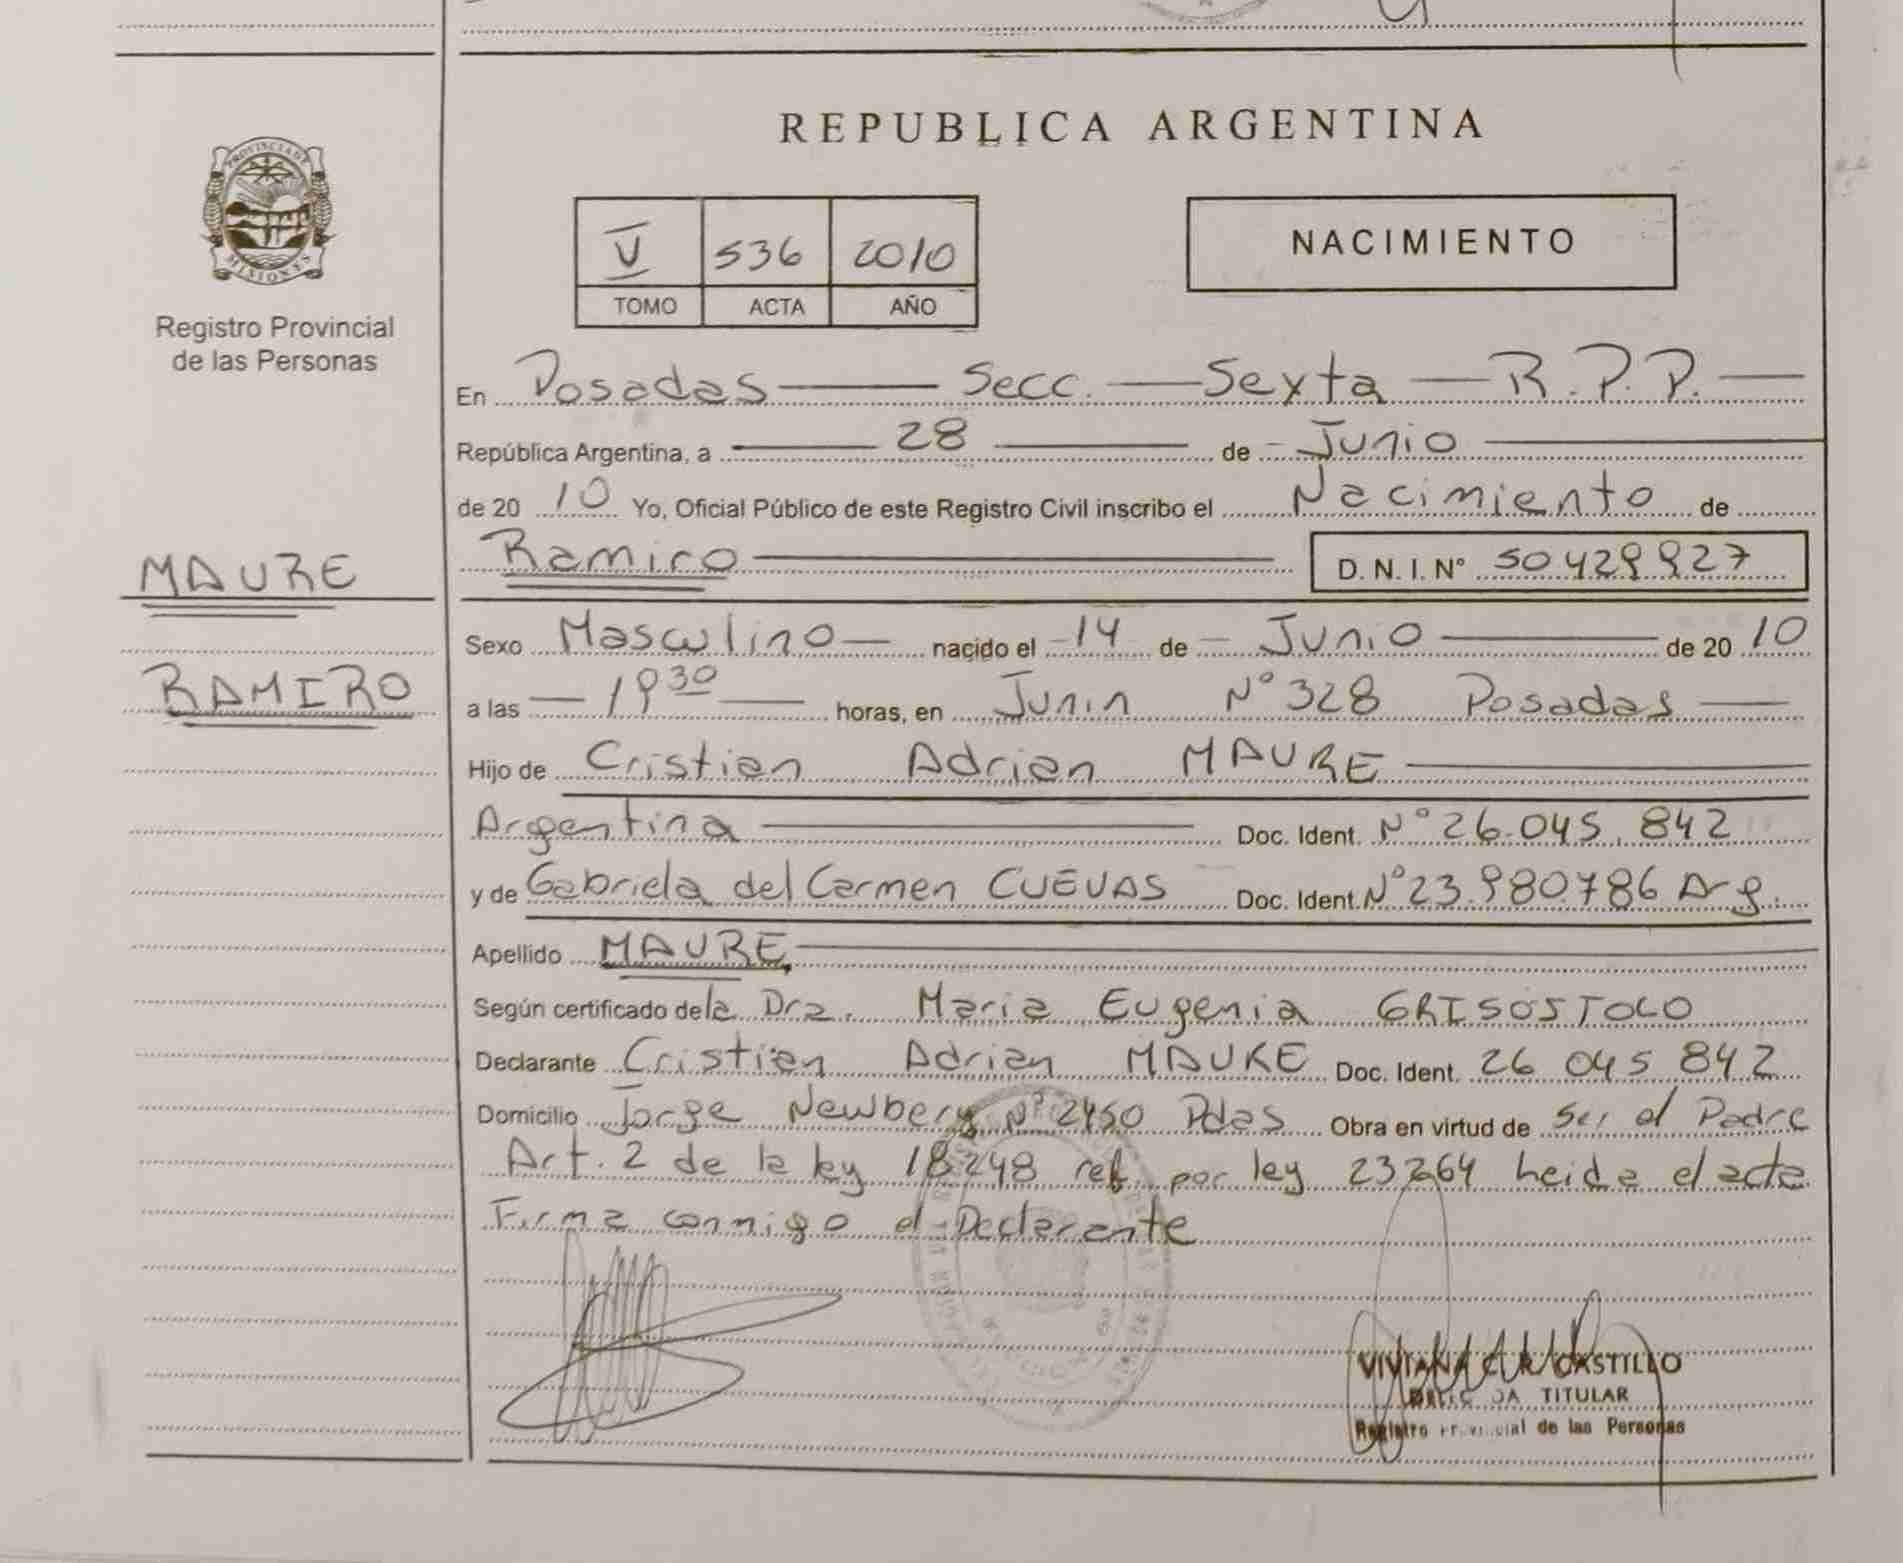 REPUBLICA ARGENTINA
PROVINCIA DE
MISIONES
Registro Provincial
de las Personas
V 536 2010
TOMO ACTA AÑO
NACIMIENTO
En Posadas Secc. Sexta R.P.P.
República Argentina, a 28 de Junio
de 2010 Yo, Oficial Público de este Registro Civil inscribo el Nacimiento de
MAURE
Ramiro D. N. I. Nº 50429927
RAMIRO
Sexo Masculino nacido el 14 de Junio de 2010
a las 19 30 horas, en Junin Nº 328 Posadas
Hijo de Cristian Adrian MAURE
Argentina Doc. Ident. Nº 26.045.842
y de Gabriela del Carmen CUEVAS Doc. Ident. Nº 23.980786 Arg.
Apellido MAURE
Según certificado de la Dra. Maria Eugenia GRISOSTOLO
Declarante Cristian Adrian MAURE Doc. Ident. 26 045 842
Domicilio Jorge Newbery Nº 2450 Pdas Obra en virtud de Ser el Padre
Art. 2 de la ley 18248 ref. por ley 23264 leida el acta
Firma conmigo el Declarante
CASTILLO
TITULAR
Registro Provincial de las Personas